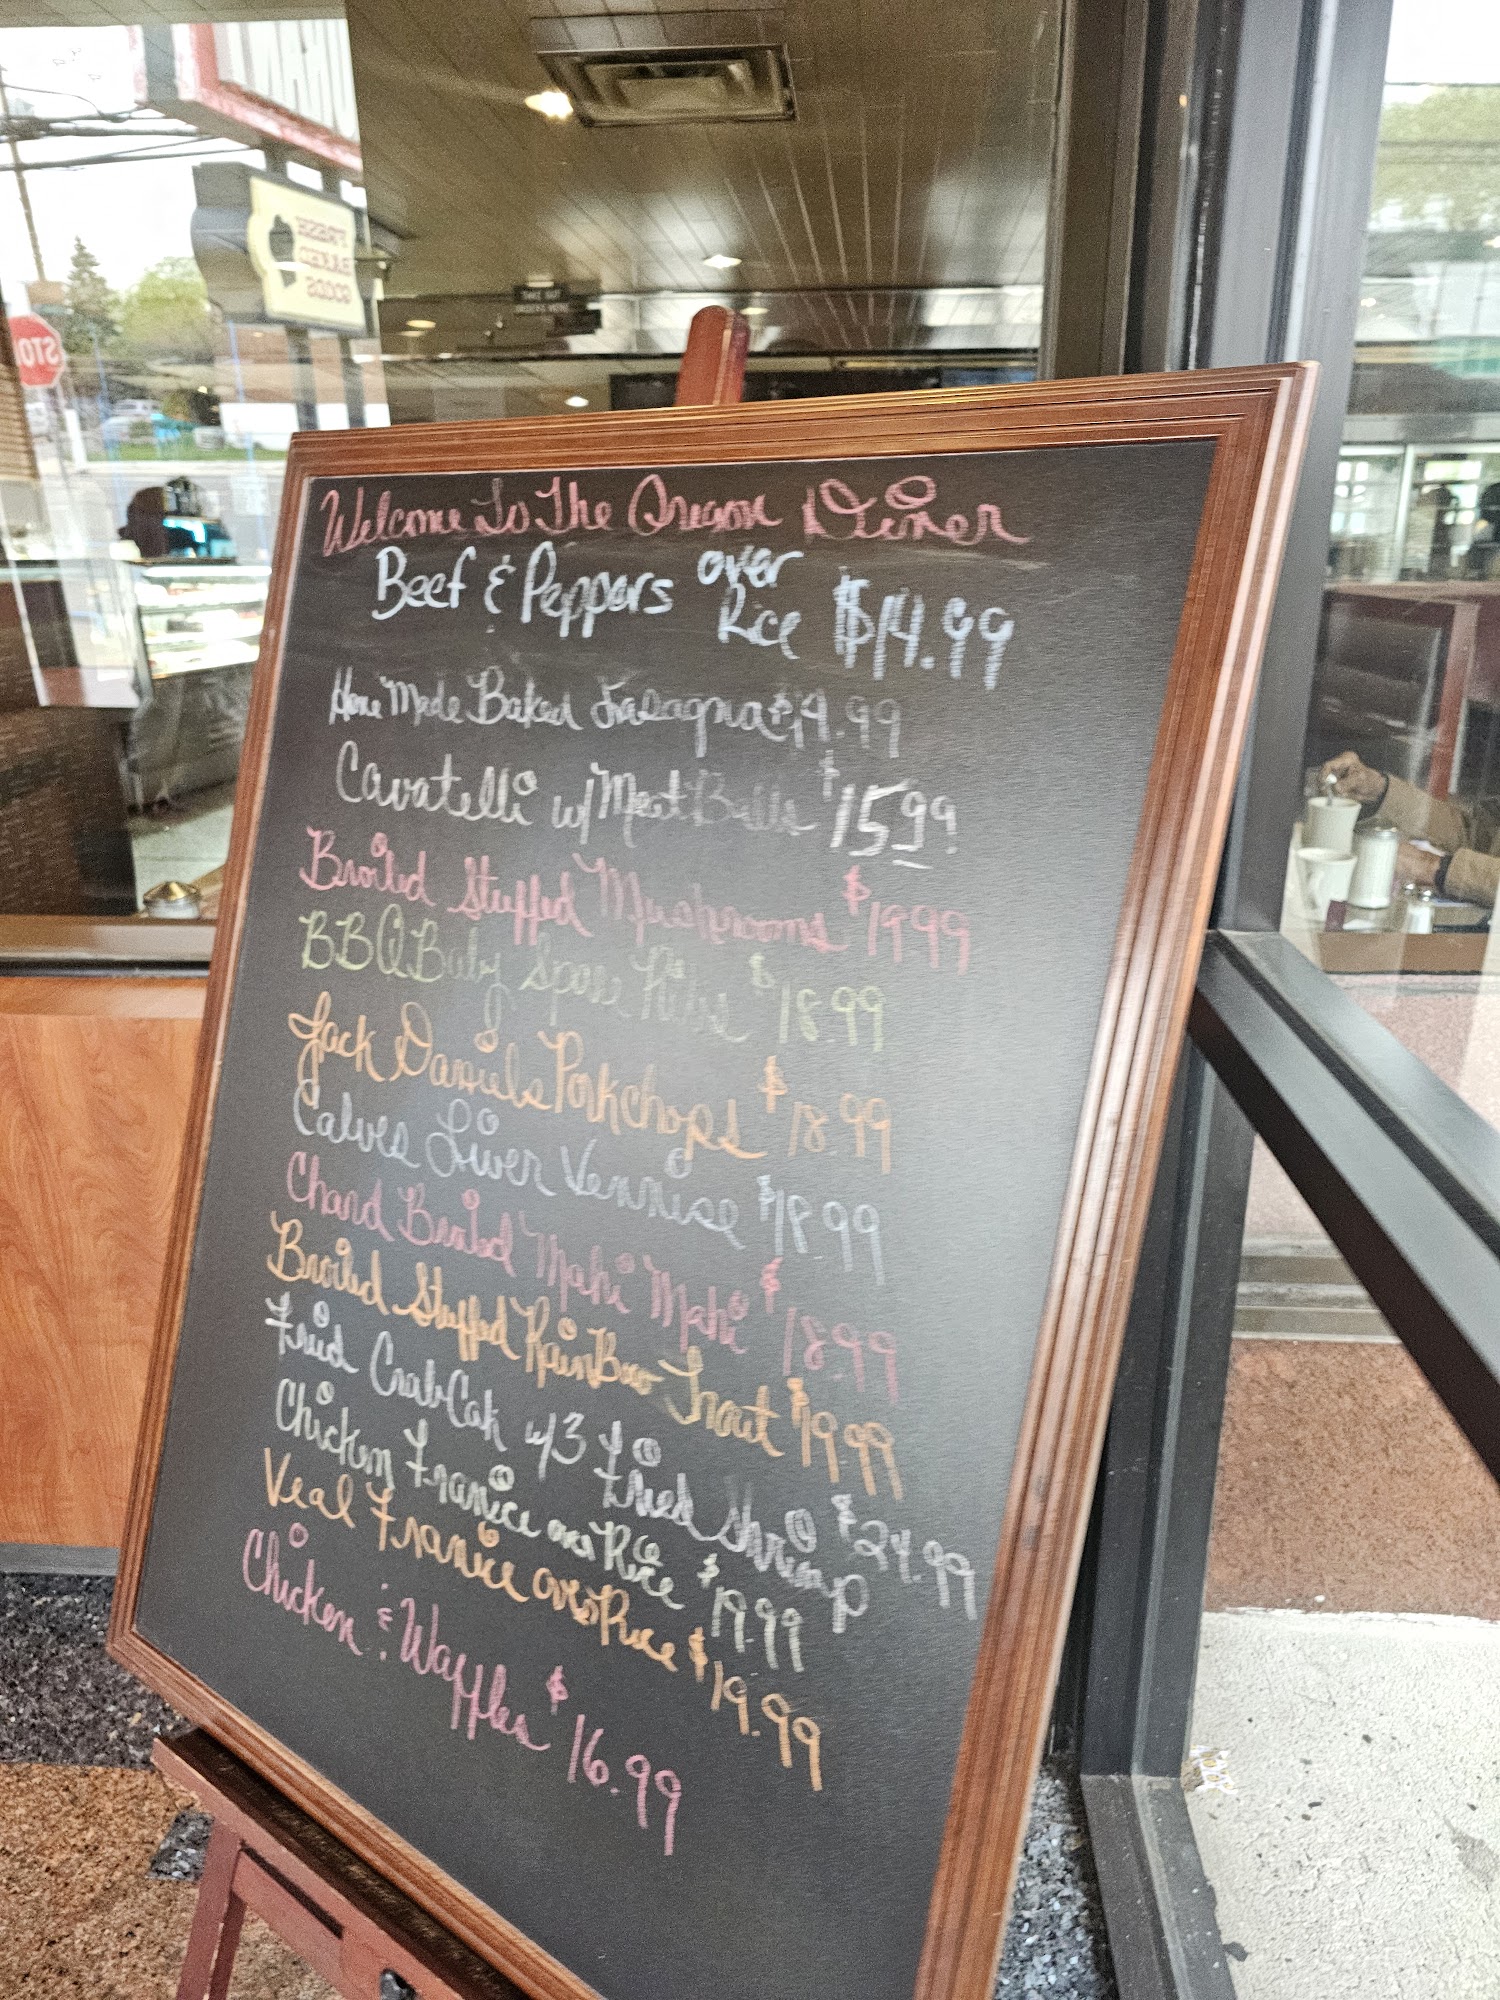 FRESH
BAKED
GOODS
STOP
Welcome To The Oregon Diner
Beef & Peppers over Rice $14.99
Home Made Baked Lasagna $14.99
Cavatelli w/ Meat Balls $15.99
Broiled Stuffed Mushrooms $19.99
BBQ Baby Spare Ribs $18.99
Jack Daniels Porkchops $18.99
Calves Liver Vennise $18.99
Chard Broiled Mahi Mahi $18.99
Broiled Stuffed RainBow Trout $19.99
Fried Crab Cak w/3 Fried Shrimp $24.99
Chicken Francie over Rice $19.99
Veal Francie over Rice $19.99
Chicken & Waffles $16.99